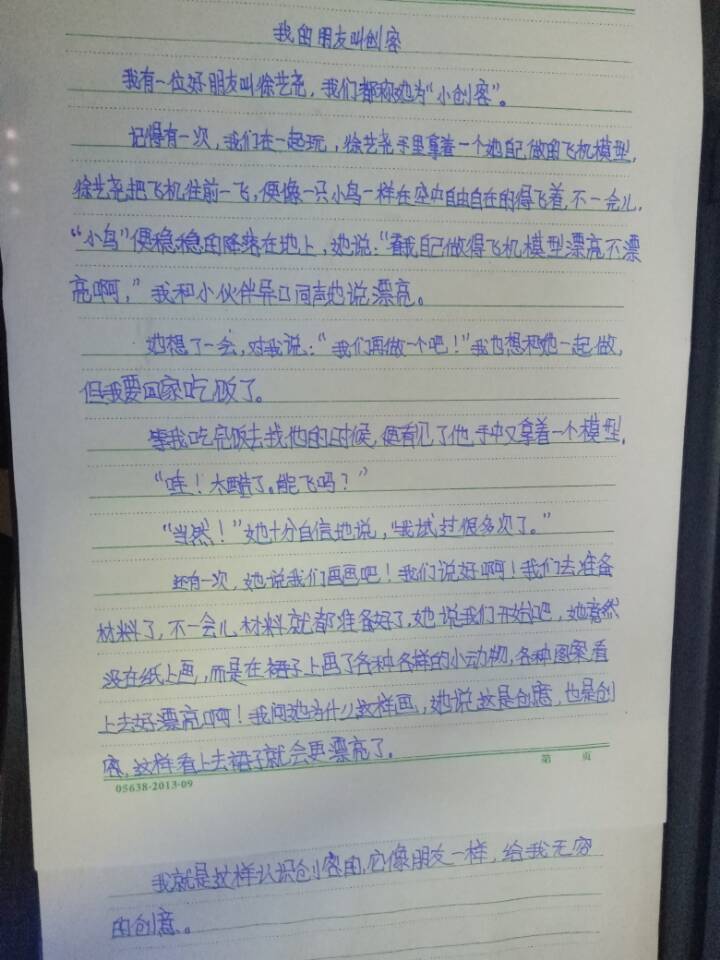 我的朋友叫创客
我有一位好朋友叫徐艺尧，我们都称她为“小创客”。
记得有一次，我们在一起玩，徐艺尧手里拿着一个她自己做的飞机模型，
徐艺尧把飞机往前一飞，便像一只小鸟一样在空中自由自在的得飞着，不一会儿，
“小鸟”便稳稳的降落在地上，她说：“看我自己做得飞机模型漂亮不漂
亮啊，”我和小伙伴异口同声地说漂亮。
她想了一会，对我说：“我们再做一个吧！”我也想和她一起做，
但我要回家吃饭了。
等我吃完饭去找他的时候，便看见了他，手中又拿着一个模型，
“哇！太酷了。能飞吗？”
“当然！”她十分自信地说，“我试过很多次了。”
还有一次，她说我们画画吧！我们说好啊！我们去准备
材料了，不一会儿材料就都准备好了，她说我们开始吧，她竟然
没在纸上画，而是在裙子上画了各种各样的小动物，各种图案看
上去好漂亮啊！我问她为什么这样画，她说这是创意，也是创
客，这样看上去裙子就会更漂亮了。
05638-2013-09
第 页
我就是这样认识创客的，它像朋友一样，给我无容
的创意。